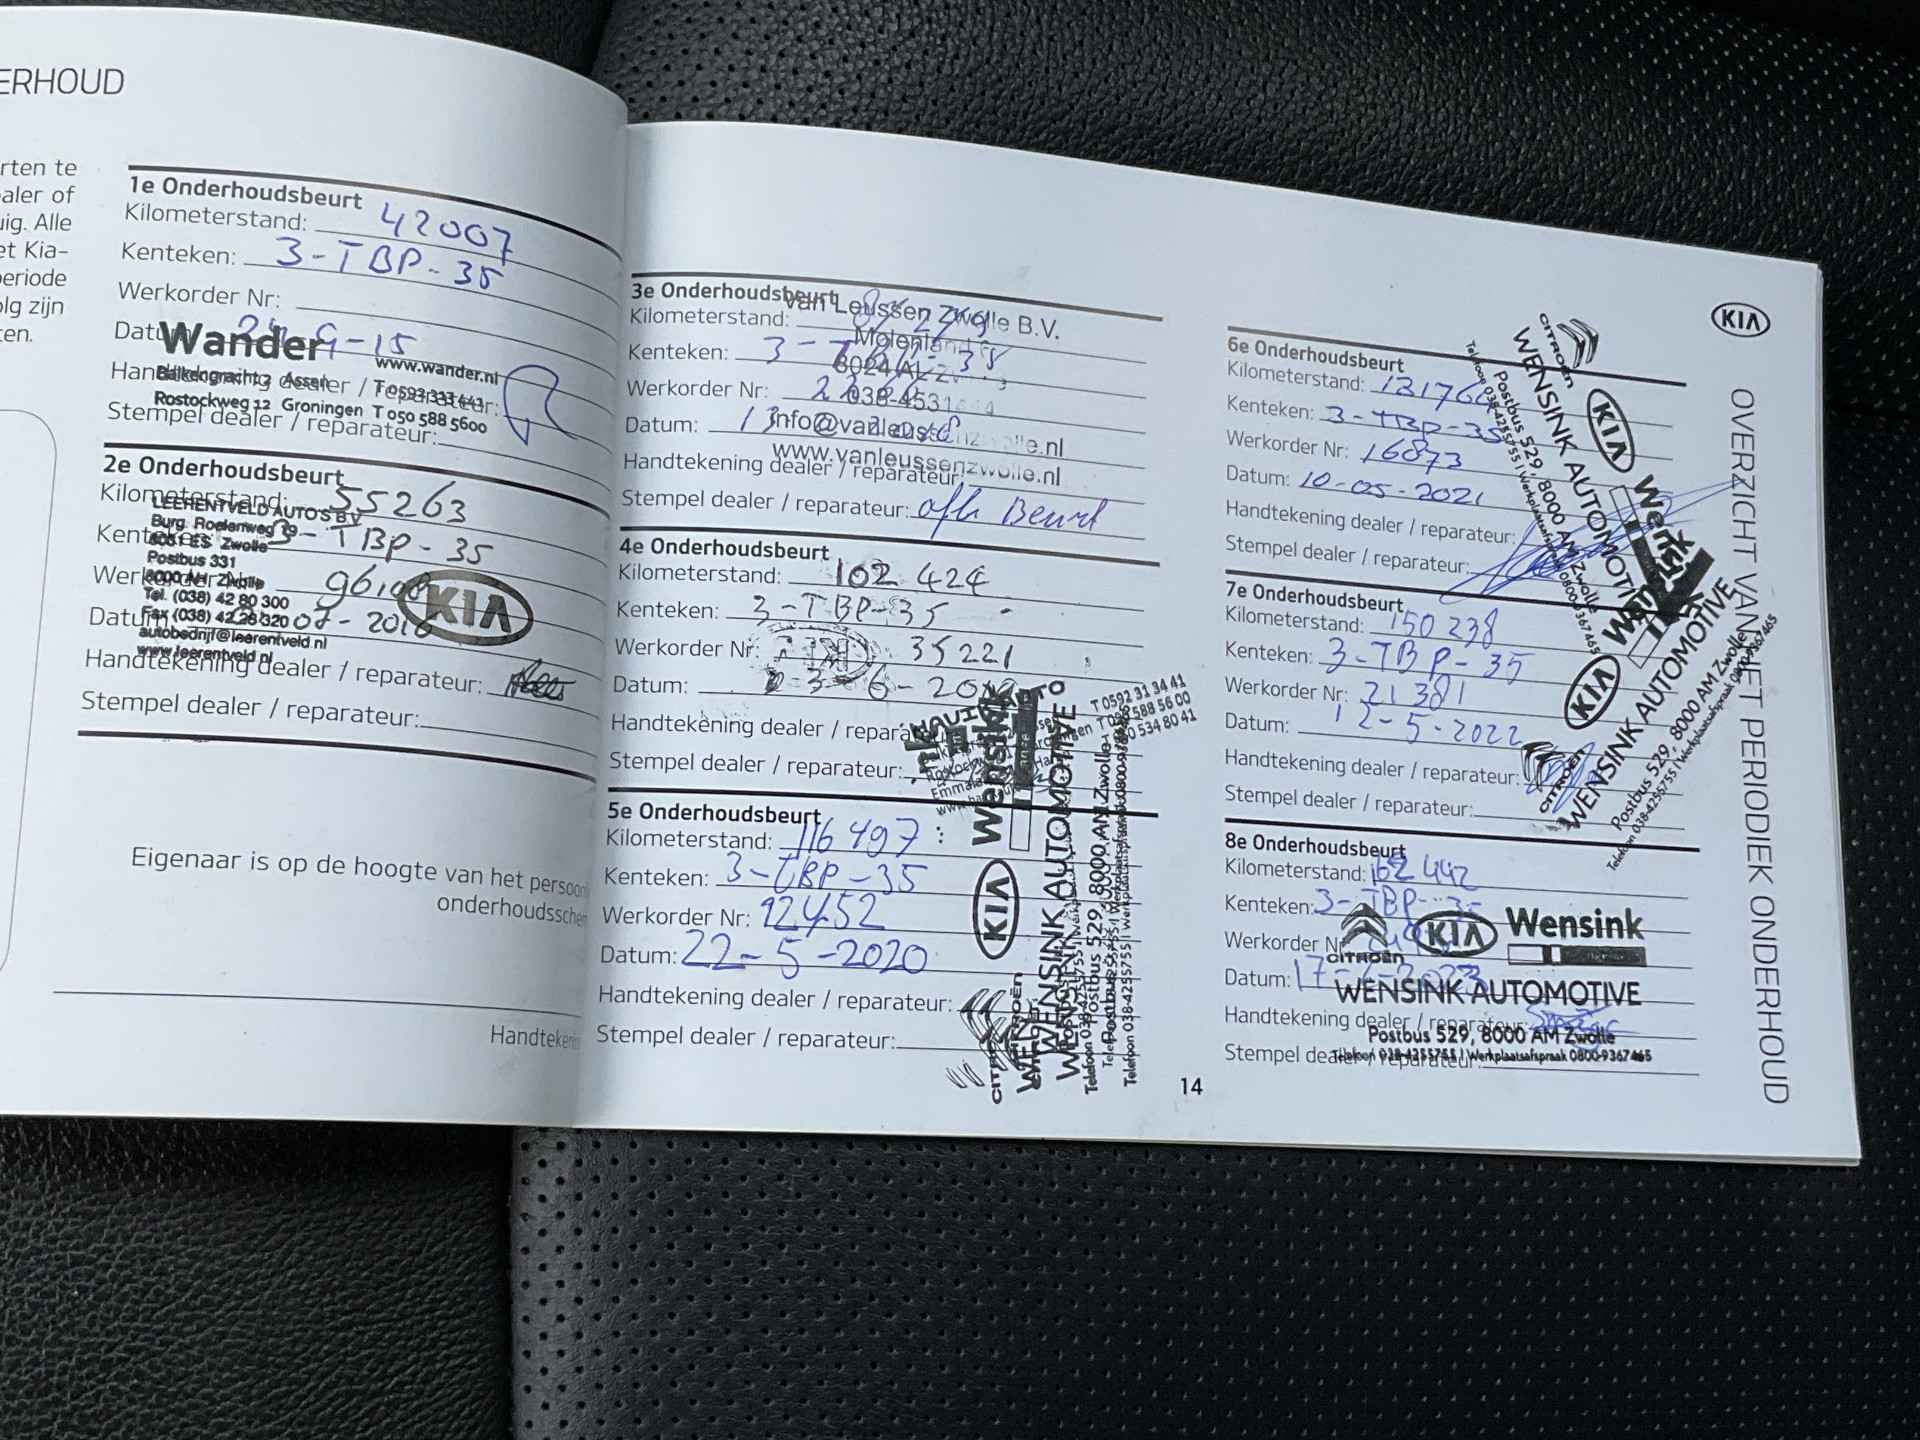 ERHOUD
rten te
aler of
uig. Alle
et Kia-
periode
olg zijn
ten.
1e Onderhoudsbeurt
Kilometerstand: 42007
Kenteken: 3-TBP-35
Werkorder Nr:
Datum: -15
Wander
www.wander.nl
Assen T 0592 333 443
Rostockweg 12 Groningen T 050 588 5600
Handtekening dealer / reparateur:
Stempel dealer / reparateur:
2e Onderhoudsbeurt
Kilometerstand: 55263
LEERENTVELD AUTO'S B.V.
Burg. Roelenweg
Kenteken: 3-TBP-35
ES Zwolle
Postbus 331
Werkorder Nr:
8000 AH Zwolle
KIA
Tel. (038) 42 80 300
Datum:
autobedrijf@leerentveld.nl
www.leerentveld.nl
Handtekening dealer / reparateur:
Stempel dealer / reparateur:
Eigenaar is op de hoogte van het persoon
onderhoudssche
Handteken
3e Onderhoudsbeurt
Van Leussen Zwolle B.V.
Kilometerstand:
Kenteken:
Werkorder Nr:
Datum: 13
www.vanleussenzwolle.nl
Handtekening dealer / reparateur:
Stempel dealer / reparateur: Beurt
4e Onderhoudsbeurt
Kilometerstand: 102 424
Kenteken: 3-TBP-35
Werkorder Nr: 35221
Datum:
Handtekening dealer / reparateur:
Stempel dealer / reparateur:
T 0592 31 34 41
5e Onderhoudsbeurt
Kilometerstand: 116497
Kenteken: 3-TBP-35
Werkorder Nr: 12452
Datum: 22-5-2020
Handtekening dealer / reparateur:
Stempel dealer / reparateur:
Wensink
KIA
CITROËN
WENSINK AUTOMOTIVE
Postbus 529, 8000 AM Zwolle
14
KIA
6e Onderhoudsbeurt
Kilometerstand: 131764
Kenteken: 3-TBP-35
Werkorder Nr: 16873
Datum: 10-05-2021
Handtekening dealer / reparateur:
Stempel dealer / reparateur:
CITROËN
KIA
Wensink
WENSINK AUTOMOTIVE
Postbus 529, 8000 AM Zwolle
Telefoon 038-4255755 | Werkplaatsafspraak 0800-9367465
7e Onderhoudsbeurt
Kilometerstand: 150238
Kenteken: 3-TBP-35
Werkorder Nr: 21381
Datum: 12-5-2022
Handtekening dealer / reparateur:
Stempel dealer / reparateur:
CITROËN
KIA
Wensink
WENSINK AUTOMOTIVE
Postbus 529, 8000 AM Zwolle
Telefoon 038-4255755 | Werkplaatsafspraak 0800-9367465
8e Onderhoudsbeurt
Kilometerstand: 162442
Kenteken: 3-TBP-35
Werkorder Nr:
Datum:
Handtekening dealer / reparateur:
Stempel dealer / reparateur:
CITROËN
KIA
Wensink
WENSINK AUTOMOTIVE
Postbus 529, 8000 AM Zwolle
Telefoon 038-4255755 | Werkplaatsafspraak 0800-9367465
OVERZICHT VAN HET PERIODIEK ONDERHOUD